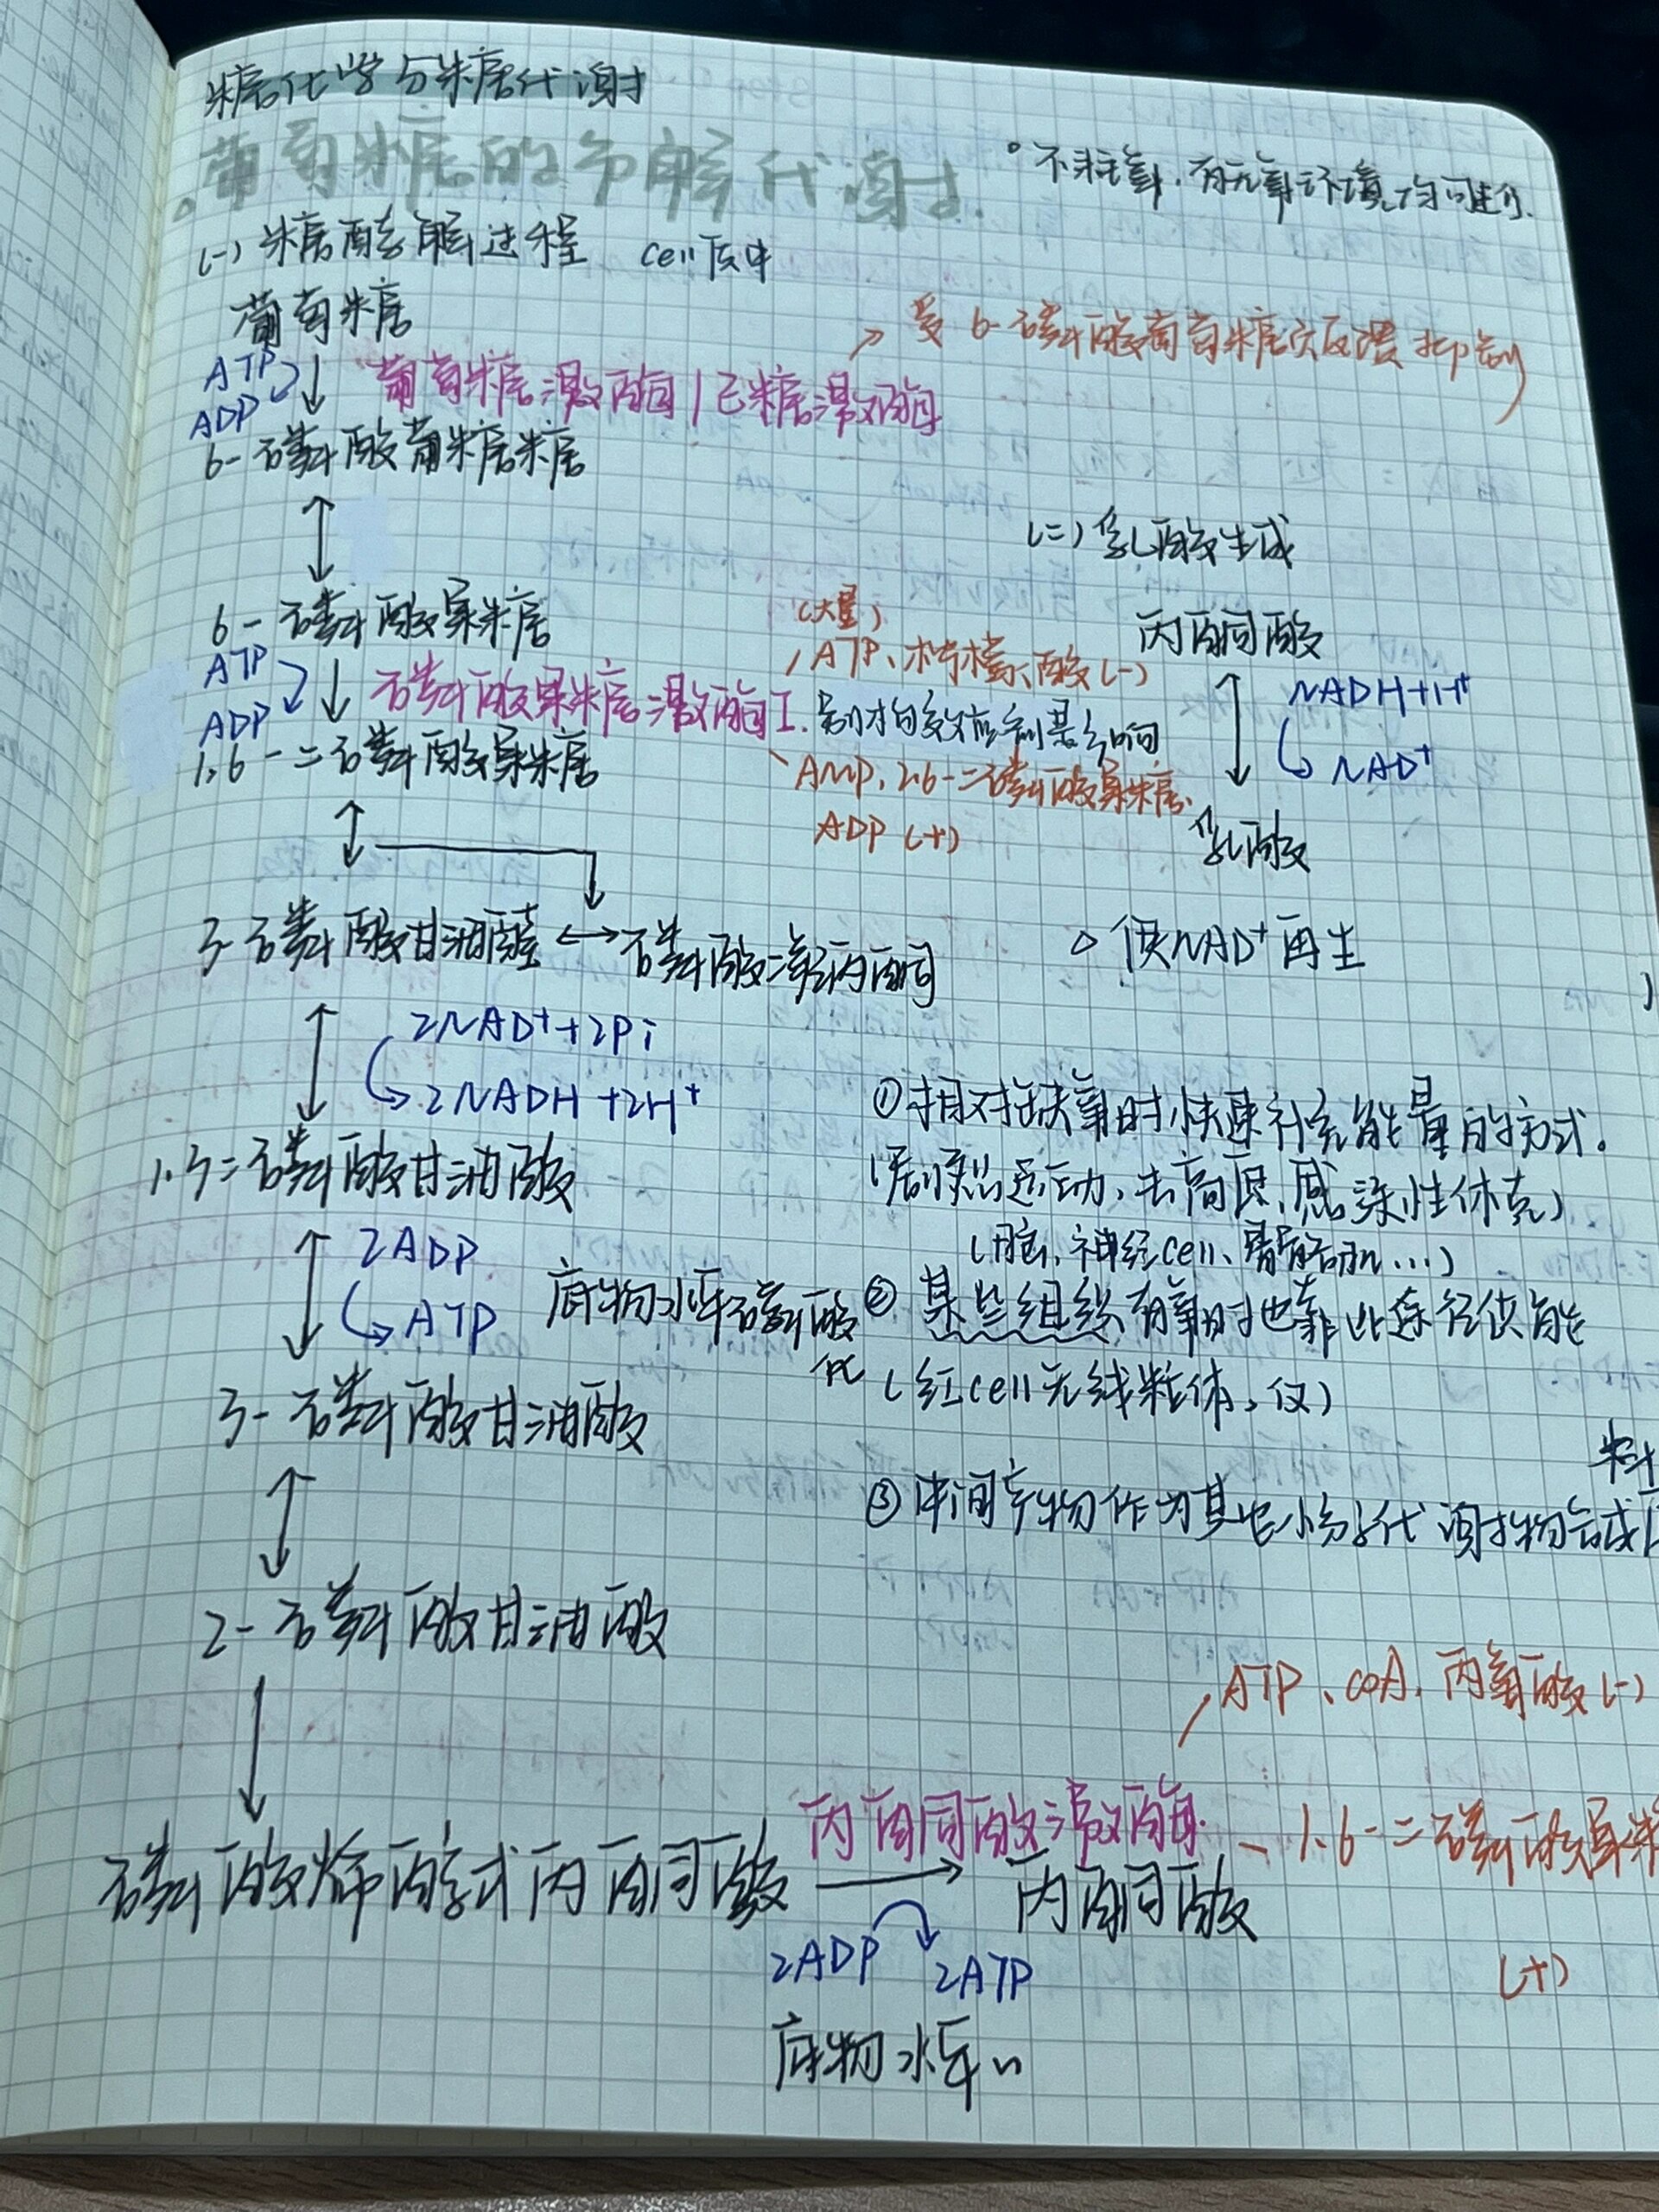 糖化学与糖代谢
葡萄糖的分解代谢
。不耗氧，有无氧环境均可进行.
(一) 糖酵解过程 cell质中
葡萄糖
ATP
ADP
葡萄糖激酶/己糖激酶
受6-磷酸葡萄糖负反馈抑制
6-磷酸葡糖糖
6-磷酸果糖
ATP
ADP
磷酸果糖激酶I.
(大量)
ATP、柠檬酸(-)
别构效应剂影响
AMP、2,6-二磷酸果糖、
ADP (+)
1,6-二磷酸果糖
3-磷酸甘油醛 ↔ 磷酸二羟丙酮
2NAD⁺+2Pi
2NADH+2H⁺
1,3-二磷酸甘油酸
2ADP
ATP
底物水平磷酸
化
3-磷酸甘油酸
2-磷酸甘油酸
磷酸烯醇式丙酮酸 → 丙酮酸
丙酮酸激酶.
ATP、CoA、丙氨酸(-)
1,6-二磷酸果
(+)
2ADP
2ATP
底物水平〃
(二) 乳酸生成
丙酮酸
NADH+H⁺
NAD⁺
乳酸
供NAD⁺再生
①相对缺氧时快速补充能量的方式。
(剧烈运动、去高原、感染性休克)
(脑、神经cell、骨骼肌…)
②某些组织有氧时也靠此途径供能
(红cell无线粒体、仅)
料
③中间产物作为其他小分子代谢物合成